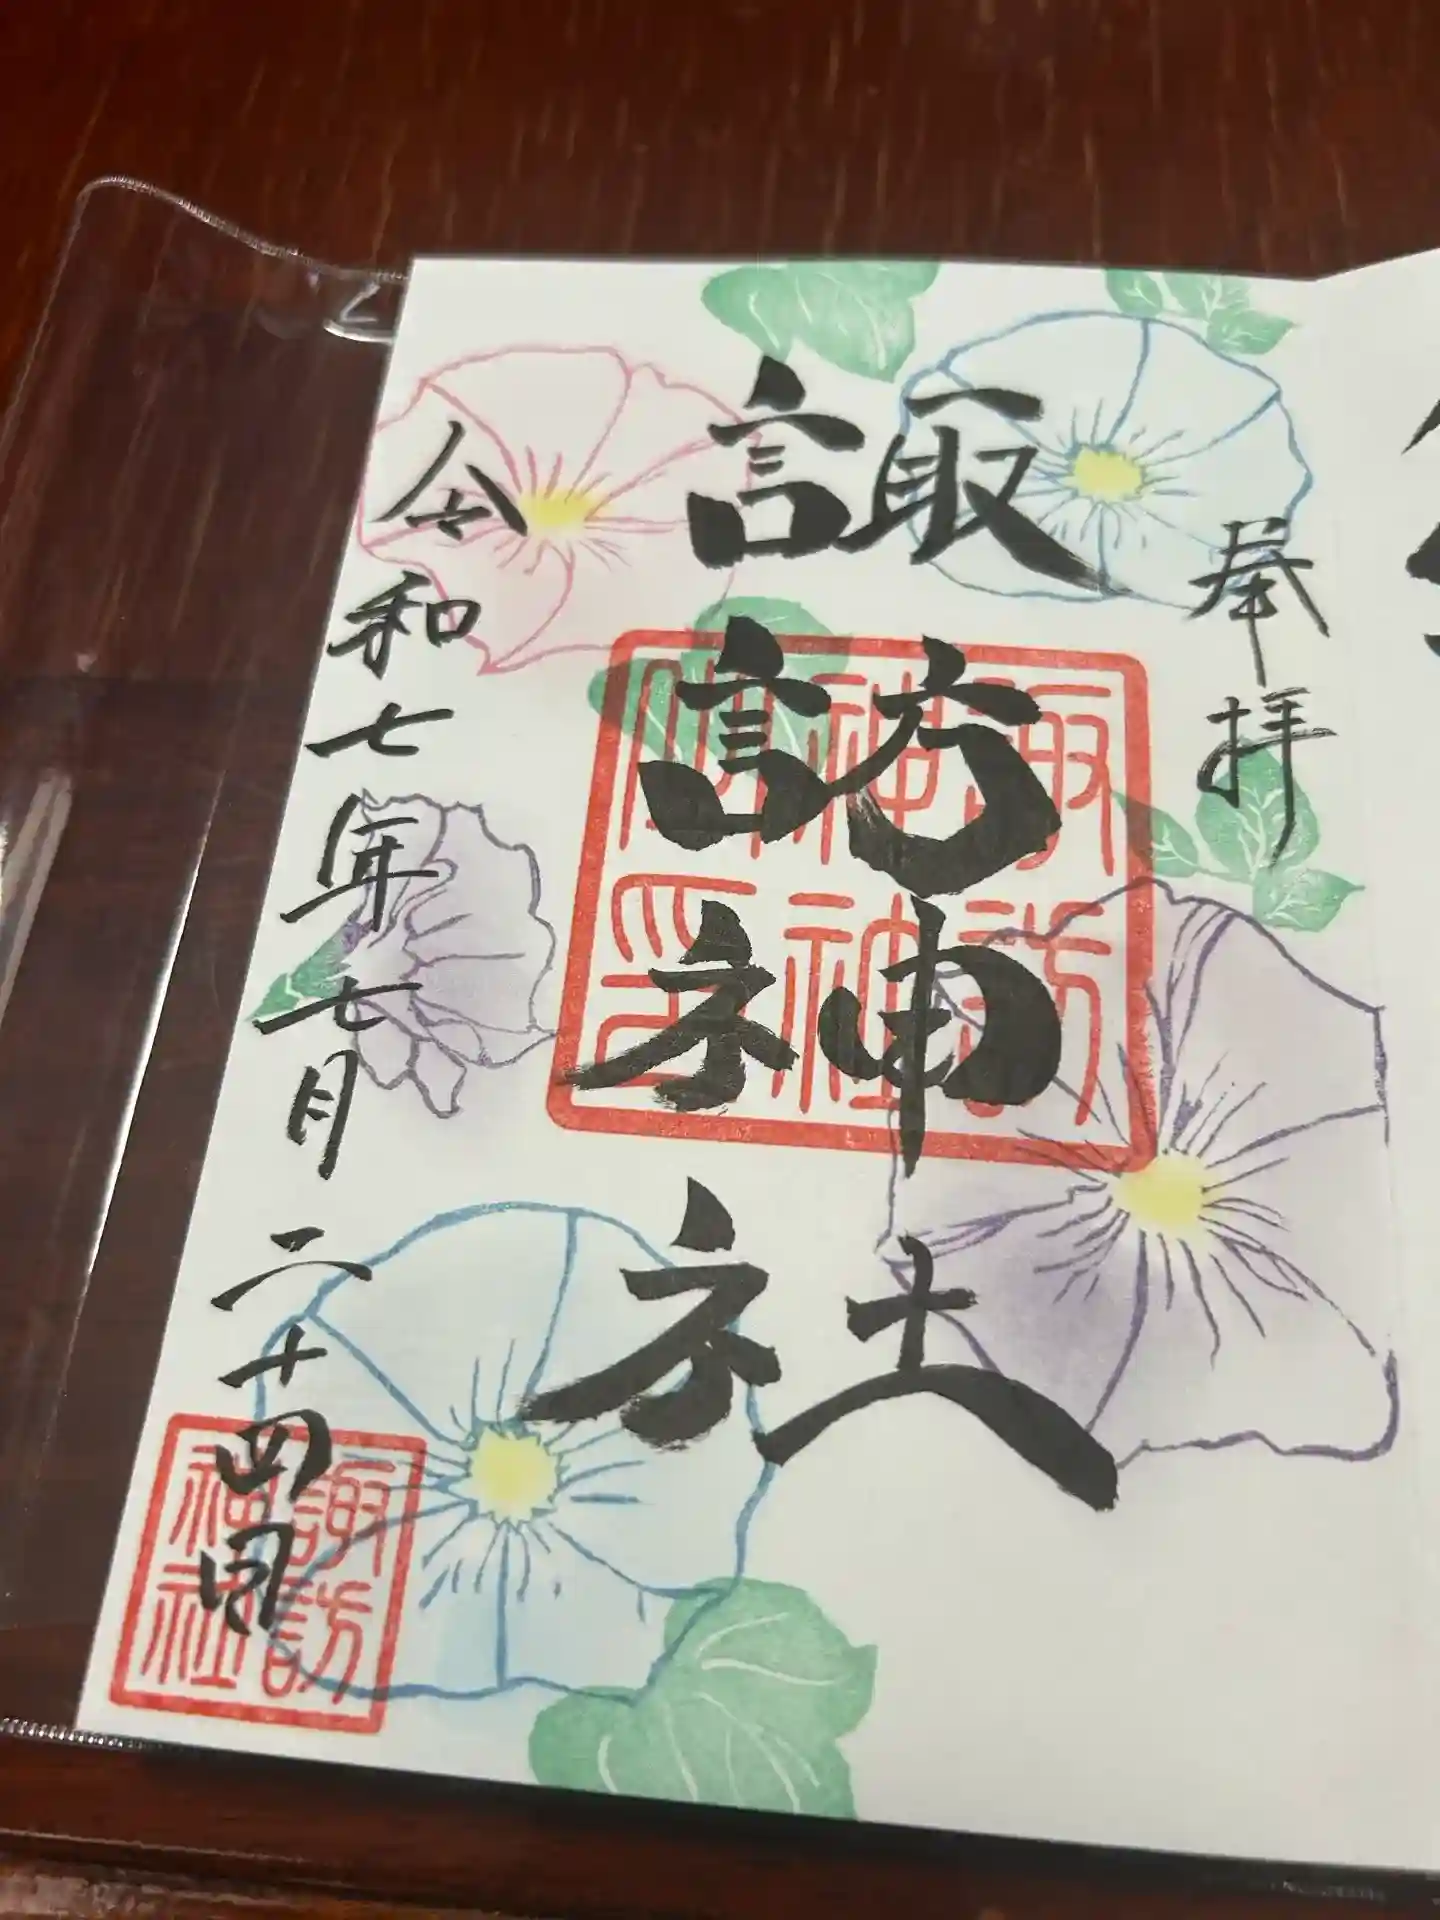 奉拝
諏訪神社
令和七年七月二十四日
諏訪
神社
諏訪
神社